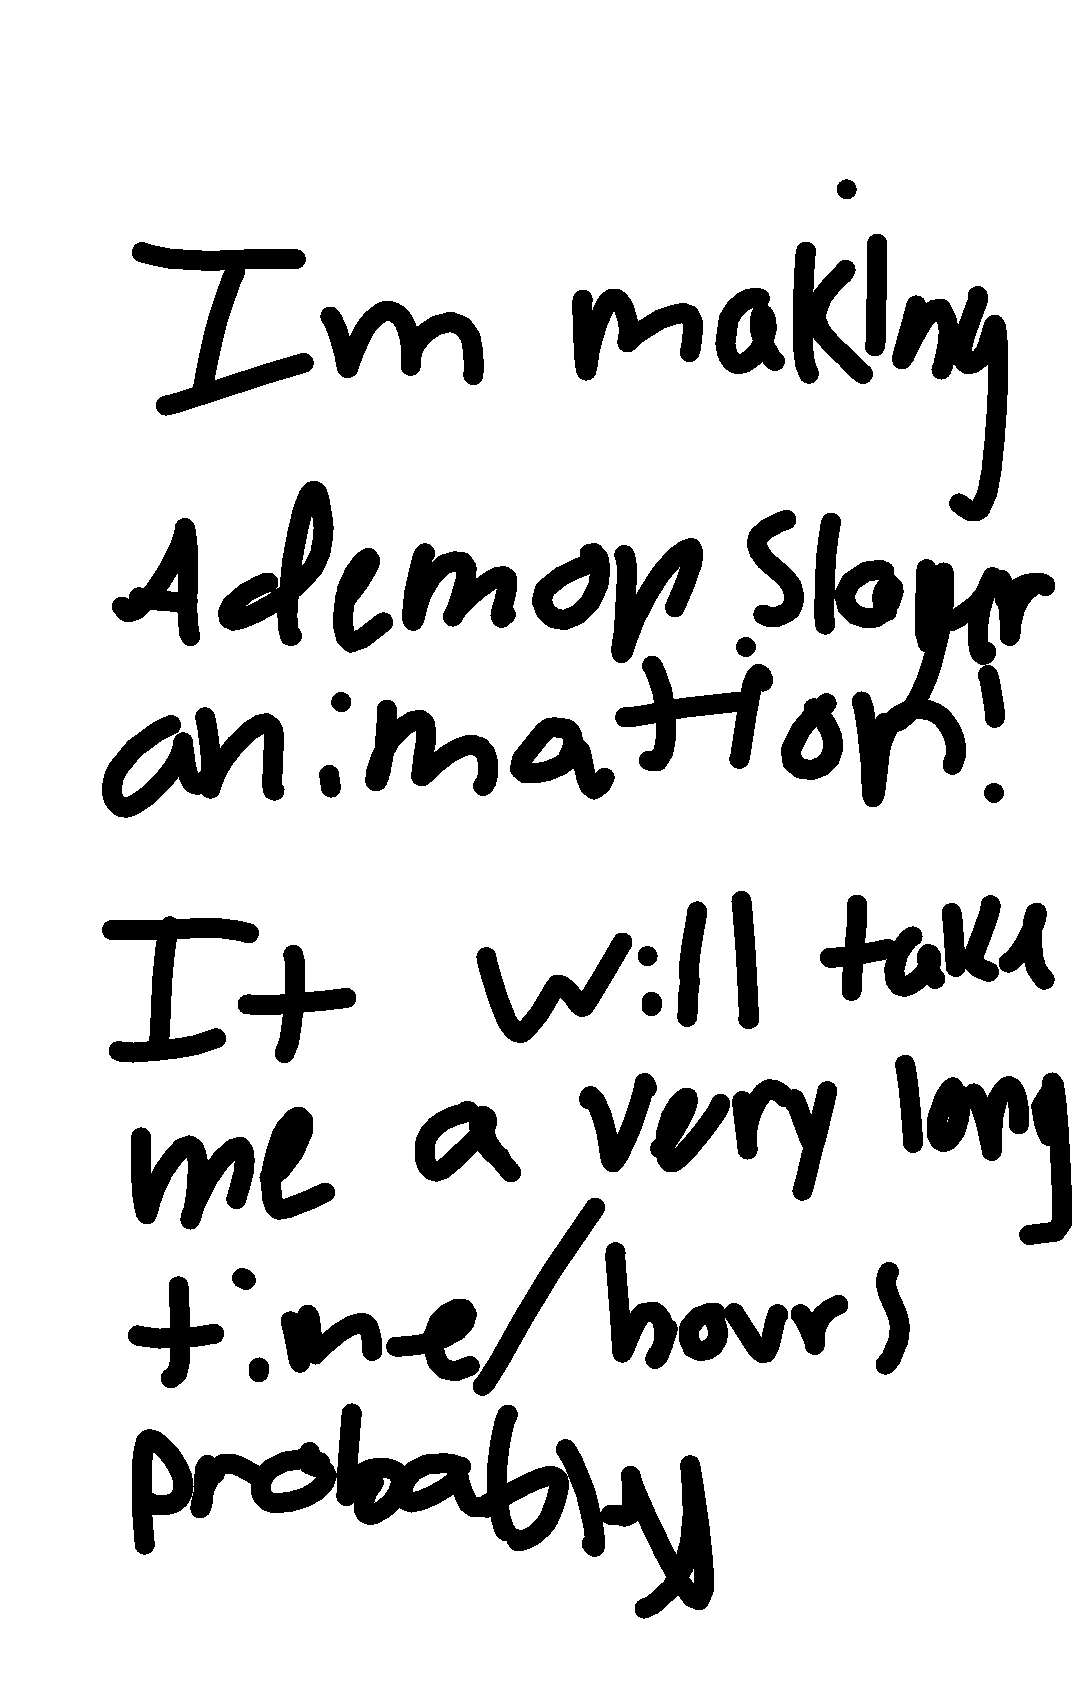 Im making
A demon Slayer
animation!
It will take
me a very long
time/hours
probably